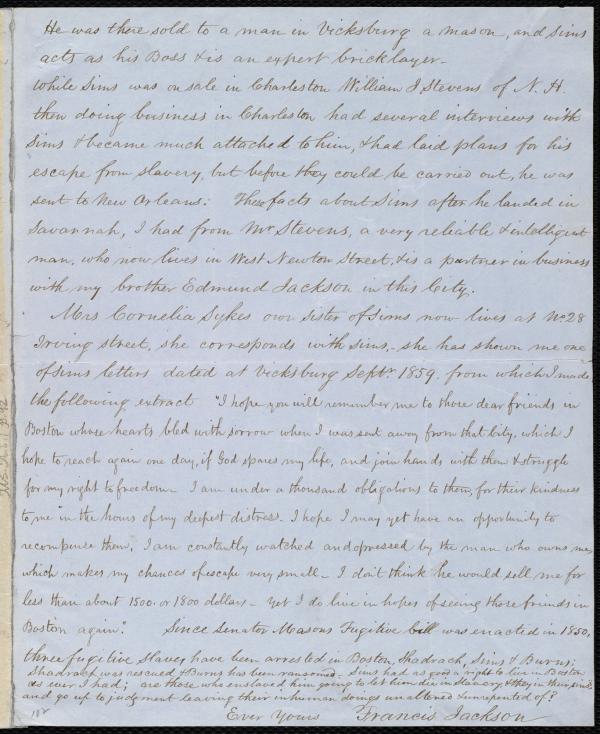 He was there sold to a man in Vicksburg a mason, and Sims
acts as his Boss & is an expert bricklayer—
While Sims was on sale in Charleston William J Stevens of N. H.
then doing business in Charleston had several interviews with
Sims & became much attached to him, & had laid plans for his
escape from slavery, but before they could be carried out, he was
sent to New Orleans: These facts about Sims after he landed in
Savannah, I had from Mr Stevens, a very reliable & intelligent
man, who now lives in West Newton Street, & is a partner in business
with my brother Edmund Jackson in this City.
Mrs Cornelia Sykes own sister of Sims now lives at No. 28
Irving street, she corresponds with Sims,– she has shown me one
of Sims letters dated at Vicksburg Septr 1859. from which I made
the following extract "I hope you will remember me to those dear friends in
Boston whose hearts bled with sorrow when I was sent away from that City, which I
hope to reach again one day, if God spares my life, and join hands with them & struggle
for my right to freedom– I am under a thousand obligations to them, for their kindness
to me in the hours of my deepest distress. I hope I may yet have an opportunity to
recompense them, I am constantly watched and opressed by the man who owns me,
which makes my chances of escape very small– I don't think he would sell me for
less than about 1500. or 1800 dollars– yet I do live in hopes of seeing those friends in
Boston again". Since Senator Masons Fugitive bill was enacted in 1850,
three fugitive Slaves have been arrested in Boston, Shadrach, Sims & Burns;
Shadrach was rescued & Burns has been ransomed– Sims had as good a right to live in Boston
as ever I had; are those who enslaved him going to let him die in Slavery, & they in their sins,
and go up to judgment leaving their inhuman doings unaltered & unrepented of?
Ever Yours Francis Jackson